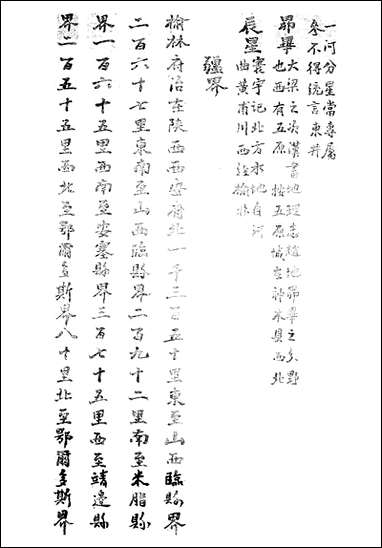 一河分星當專屬
參不得統言東井
昴畢大梁之次漢書地理志趙地昴畢之分野
也西有五原 按五原城在神木縣西北
辰星寰宇記北方水地自河
曲黃甫川西經榆林
疆界
榆林府治在陝西西安府北一千三百五十里東至山西臨縣界
二百六十七里東南至山西臨縣界二百九十二里南至米脂縣
界一百六十五里西南至安塞縣界三百七十五里西至靖邊縣
界二百五十五里西北至鄂爾多斯界八十里北至鄂爾多斯界